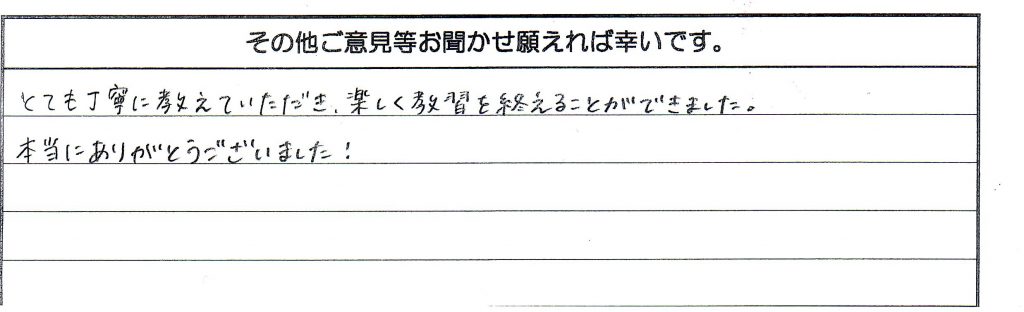 その他ご意見等お聞かせ願えれば幸いです。
とても丁寧に教えていただき、楽しく教習を終えることができました。
本当にありがとうございました！